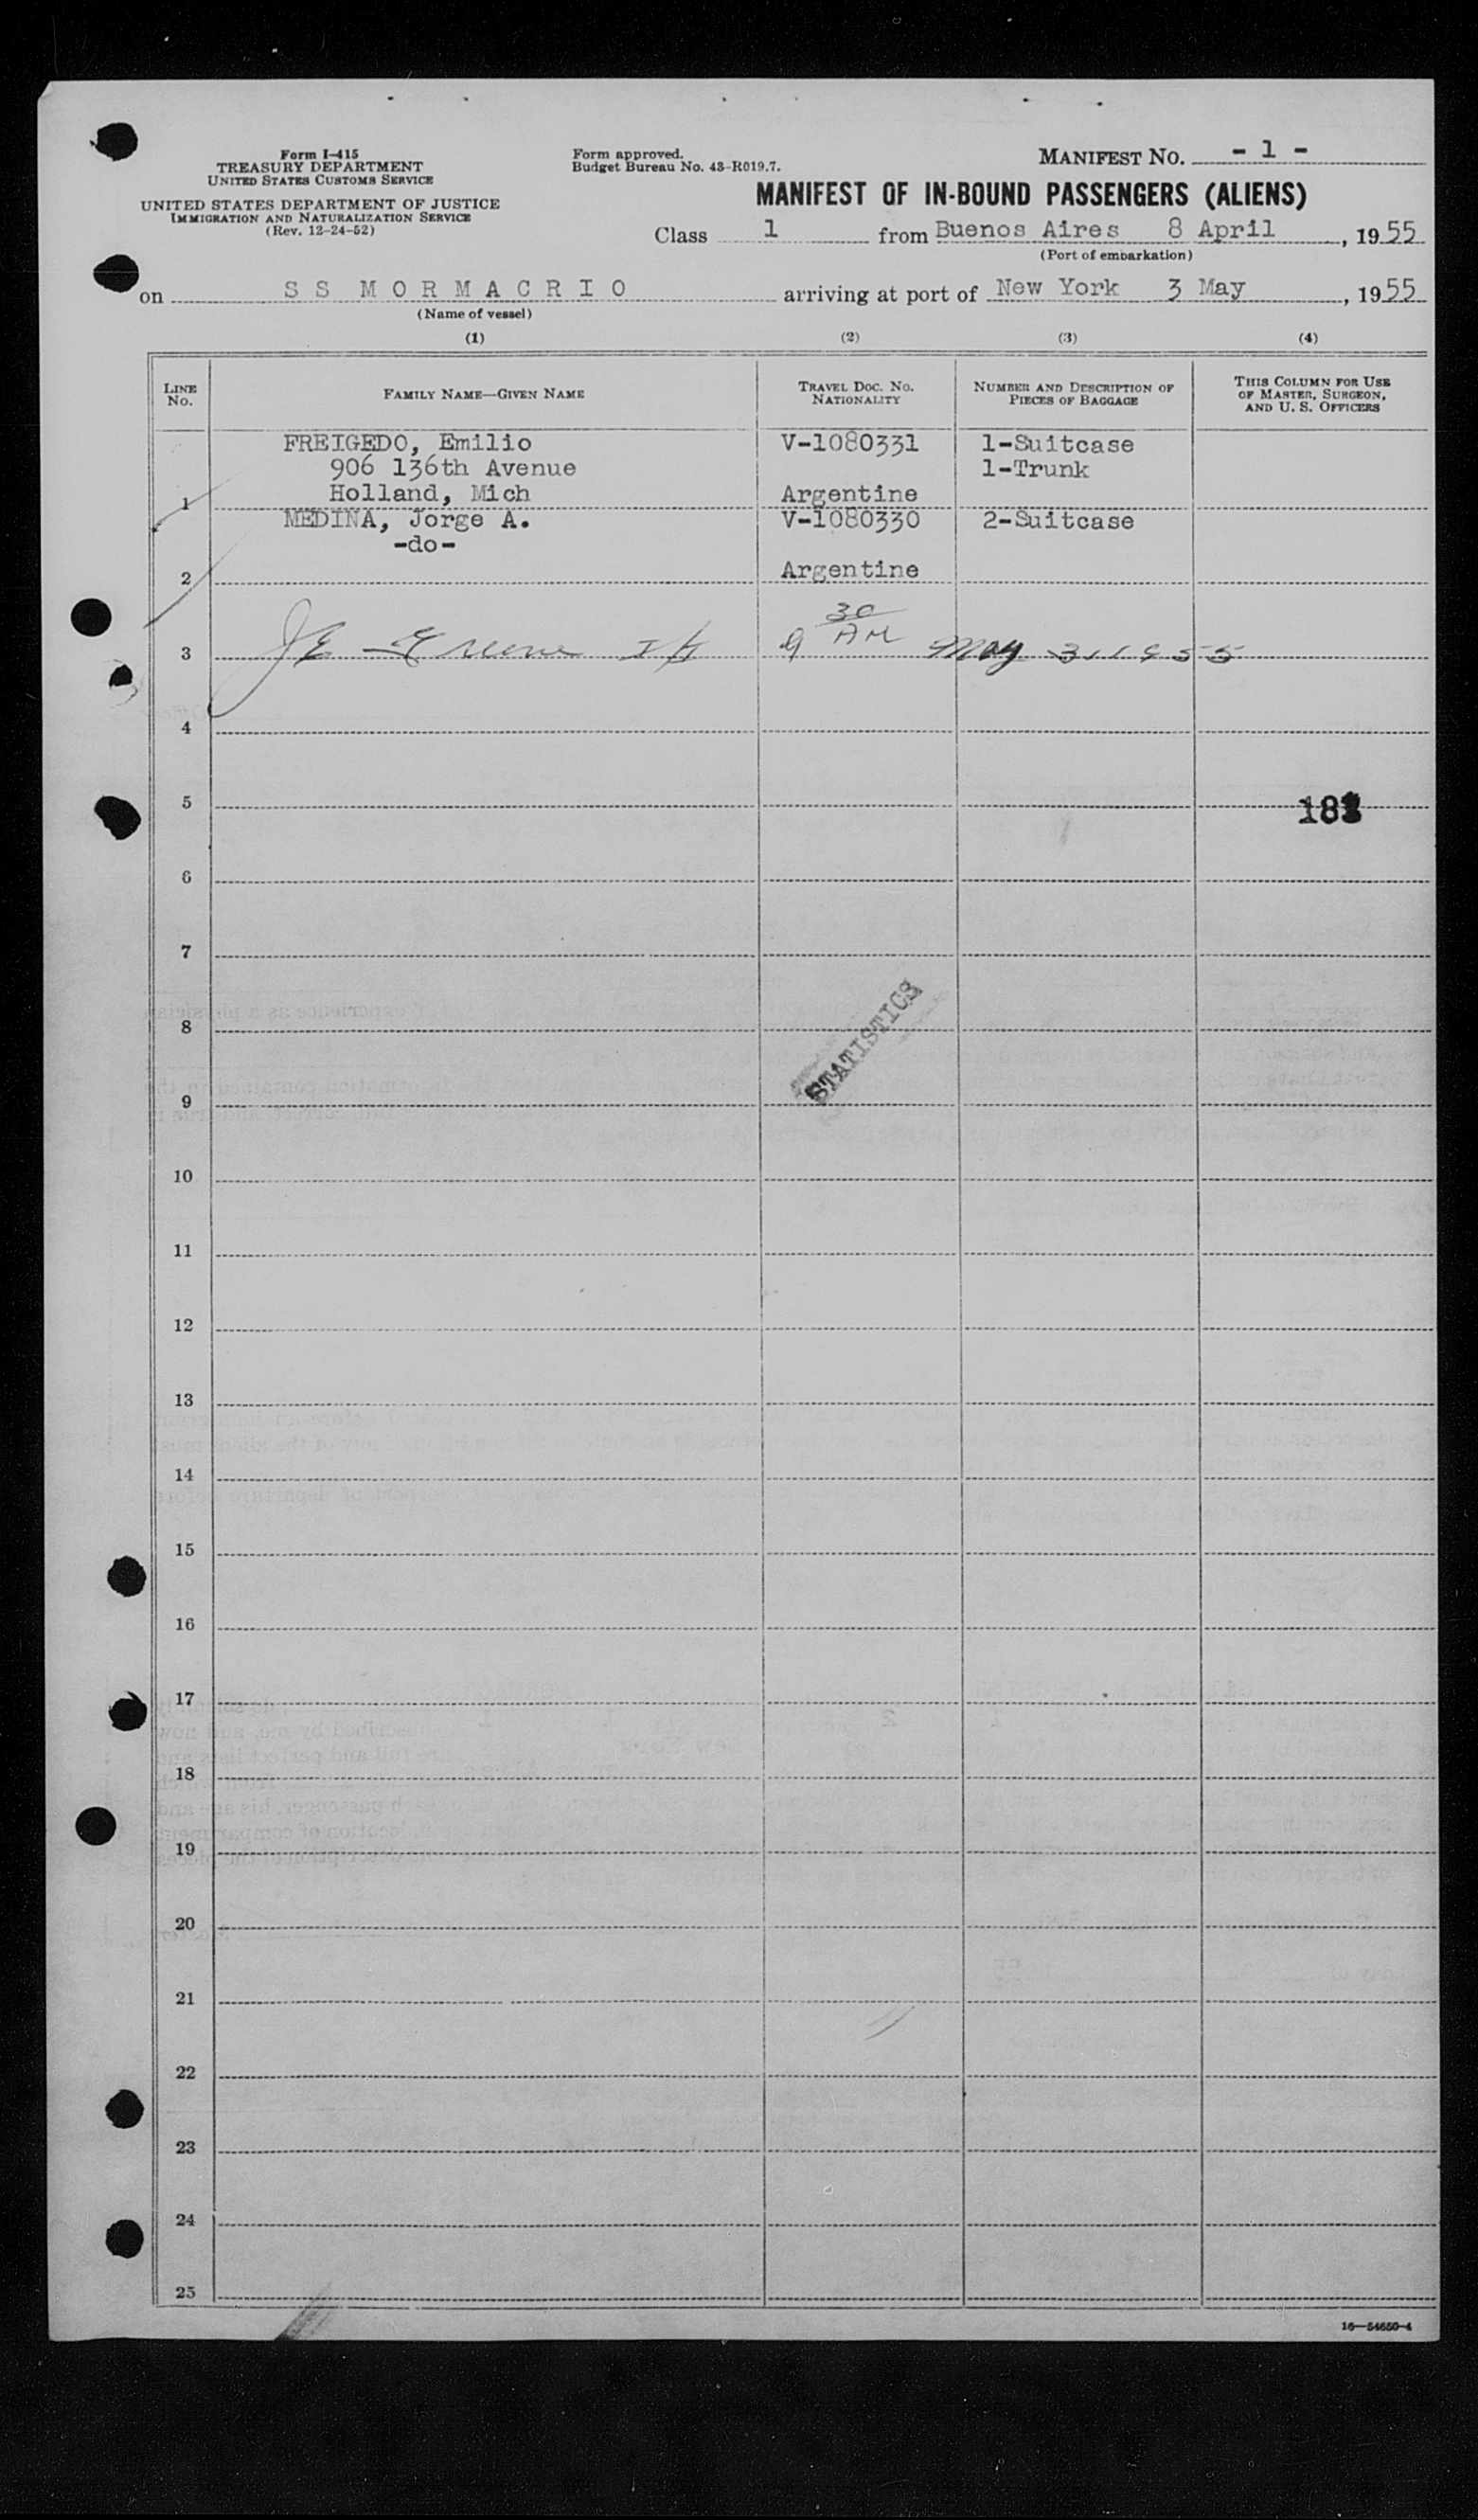 Form I-415
TREASURY DEPARTMENT
UNITED STATES CUSTOMS SERVICE
UNITED STATES DEPARTMENT OF JUSTICE
IMMIGRATION AND NATURALIZATION SERVICE
(Rev. 12-24-52)
Form approved.
Budget Bureau No. 43-R019.7.
MANIFEST NO. - 1 -
MANIFEST OF IN-BOUND PASSENGERS (ALIENS)
Class 1 from Buenos Aires 8 April, 1955
(Port of embarkation)
on S S M O R M A C R I O arriving at port of New York 3 May, 1955
(Name of vessel)
(1) (2) (3) (4)
LINE NO. FAMILY NAME—GIVEN NAME TRAVEL DOC. NO. NATIONALITY NUMBER AND DESCRIPTION OF PIECES OF BAGGAGE THIS COLUMN FOR USE OF MASTER, SURGEON, AND U. S. OFFICERS
FREIGEDO, Emilio V-1080331 1-Suitcase
906 136th Avenue 1-Trunk
1 Holland, Mich Argentine
MEDINA, Jorge A. V-1080330 2-Suitcase
-do-
2 Argentine
3 9 30 AM May 3, 1955
4
5
6
7
8
STATISTICS
9
10
11
12
13
14
15
16
17
18
19
20
21
22
23
24
25
16—54650-4